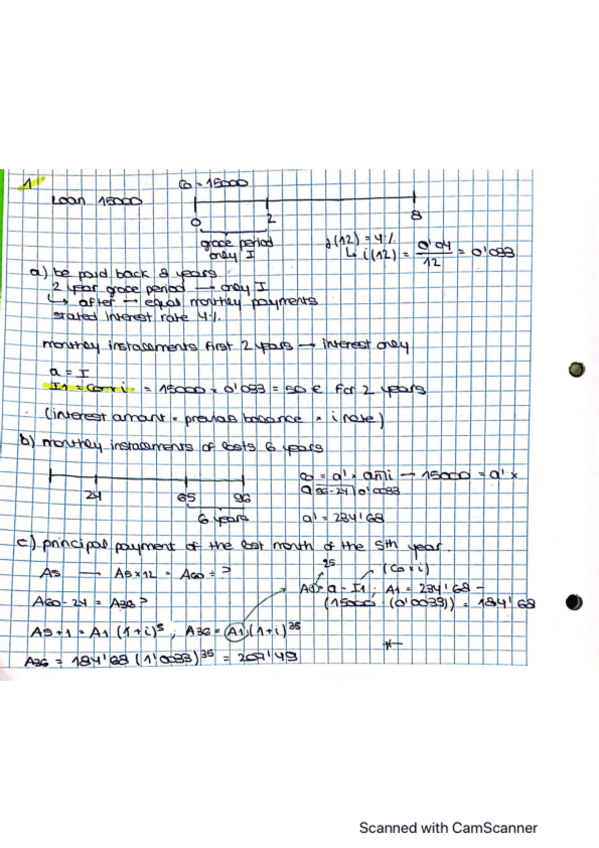 1
Co = 15000
Loan 15000
0 2 8
grace period
only I
J(12) = 4%
i(12) = 0'04 / 12 = 0'033
a) be paid back 8 years
2 year grace period → only I
↳ after → equal monthly payments
stated interest rate 4%
monthly instalments first 2 years → interest only
a = I
I1 = Co × i = 15000 × 0'033 = 50 € for 2 years
(interest amant = previas balance × i rate)
b) monthly instalments of lasts 6 years
24 65 96
6 years
Co = a' × an̅i → 15000 = a' ×
a 96-24 0'0033
a' = 234'68
c) principal payment of the last month of the 5th year.
A5 → A5×12 = A60 = ?
A60-24 = A36?
As+1 = A1 (1+i)^s ; A36 = A1 (1+i)^35
A36 = 184'68 (1'0033)^35 = 207'49
25 (Co×i)
= a - I1 ; A1 = 234'68 -
(15000 · (0'0033)) = 184'68
Scanned with CamScanner